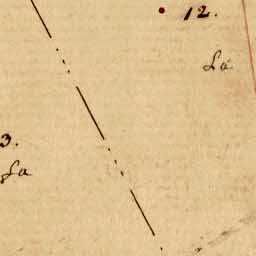 12.
La
3.
La